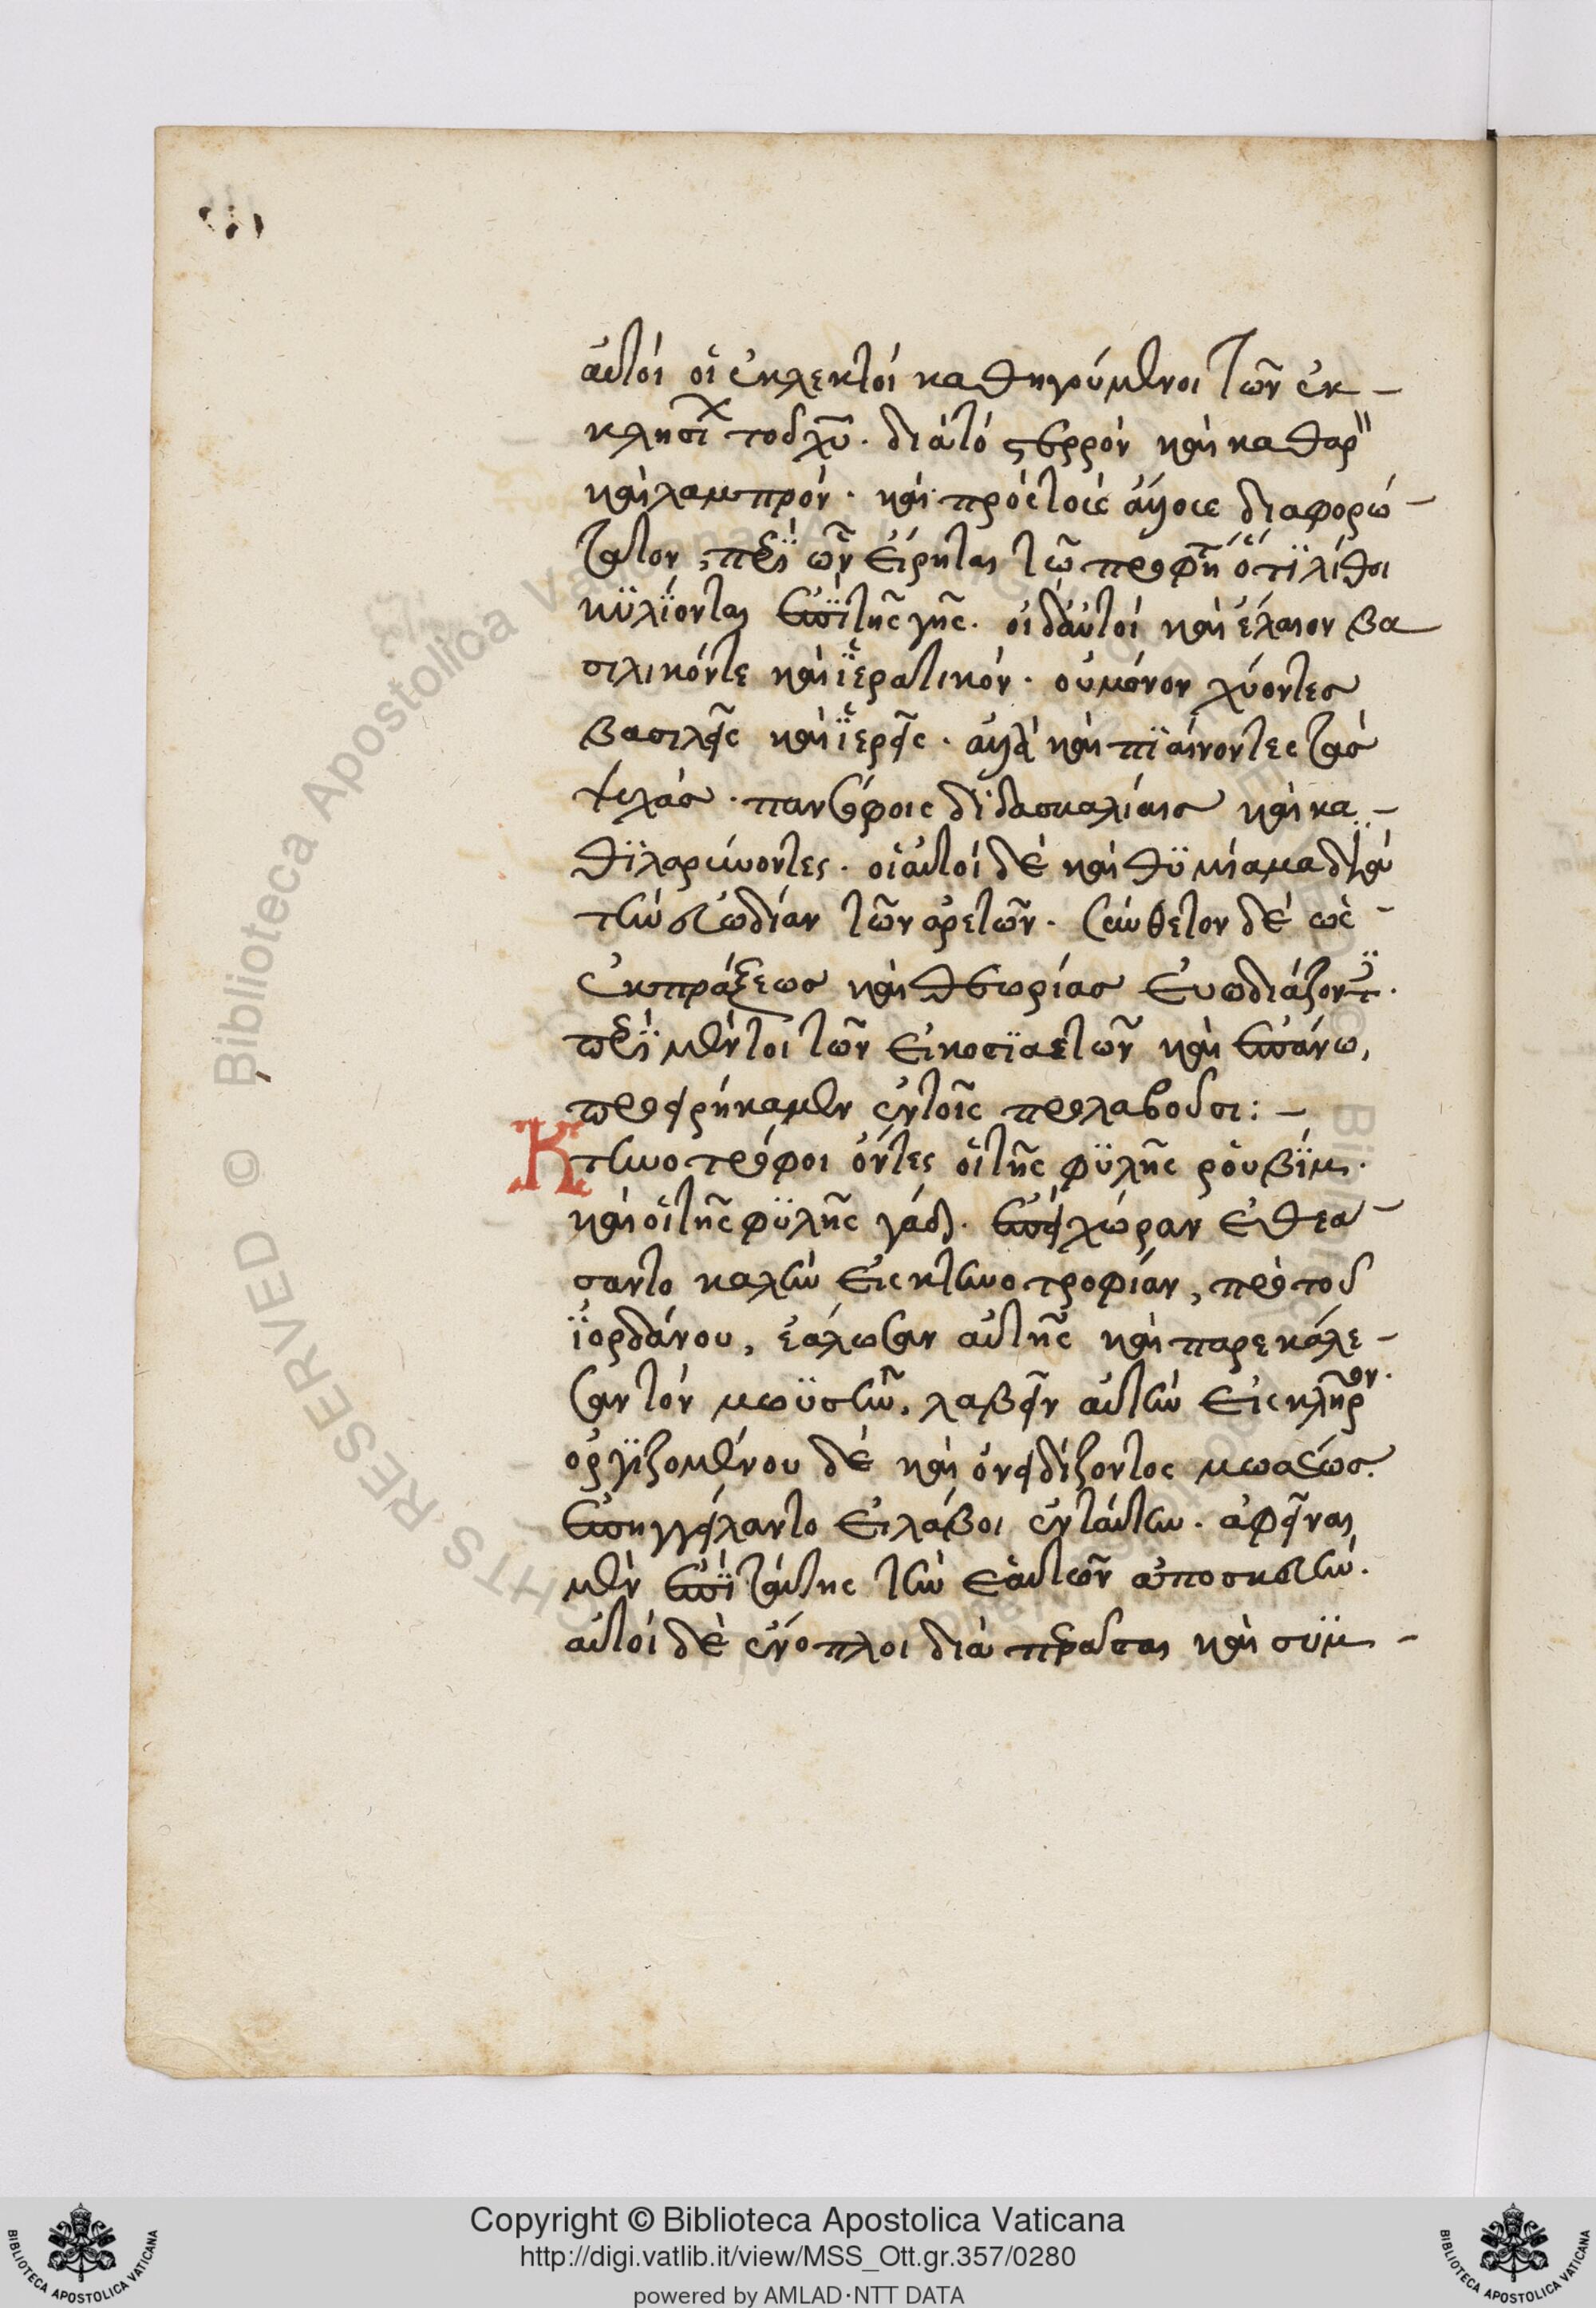 αὐτοὶ οἱ ἐκλεκτοὶ καθηγούμενοι τῶν ἐκ-
κλησι τοῦ χυ. διὰ τὸ στερρὸν καὶ καθαρ
καὶ λαμπρὸν. καὶ πρὸς τοὺς ἄλλους διαφορώ-
τατον, περὶ ὧν εἴρηται τῶ προφη ὅτι λίθοι
κϋλίονται ἐπὶ τῆς γῆς. οἱ δαὐτοὶ καὶ ἔλαιον βα
σιλικόντε καὶ ἱερατικόν. οὐ μόνον χύοντες
βασιλεῖς καὶ ἱερεῖς. ἀλλὰ καὶ πιαίνοντες τὰσ
ψυχὰσ. πανσόφοις διδασκαλίαις καὶ κα-
θϊλαρύνοντες. οἱ αὐτοὶ δὲ καὶ θϋμίαμα διὰ
τὴν εὐωδίαν τῶν ἀρετῶν. σύνθετον δὲ ὡς-
ἐκ πράξεως καὶ θεωρίασ εὐωδιάζοντ.
περὶ μέντοι τῶν εἰκοσϊαετῶν καὶ ἐπάνω,
προειρήκαμεν ἐν τοῖς προλαβοῦσι:-
Κτηνοτρόφοι ὄντες οἱ τῆς φϋλῆς ῥουβϊμ.
καὶ οἱ τῆς φϋλῆς γάδ. ἐπεὶ χώραν ἐθεα-
σαντο καλὴν εἰς κτηνοτροφίαν, πρὸ τοῦ
ἰορδάνου, ἑάλωσαν αὐτῆς καὶ παρεκάλε-
σαν τὸν μωϋσῆν, λαβεῖν αὐτὴν εἰς κλῆρον.
ὀργιζομένου δὲ καὶ ὀνειδίζοντος μωσέωσ.
ἐπηγγείλαντο εἰ λάβοι ἐν ταύτην. ἀφεῖναι
μὲν ἐπὶ ταύτης τὴν ἑαυτῶν ἀποσκευὴν.
αὐτοὶ δὲ ἔνοπλοι διαπερᾶσαι καὶ σϋμ-
Copyright © Biblioteca Apostolica Vaticana
http://digi.vatlib.it/view/MSS_Ott.gr.357/0280
powered by AMLAD·NTT DATA